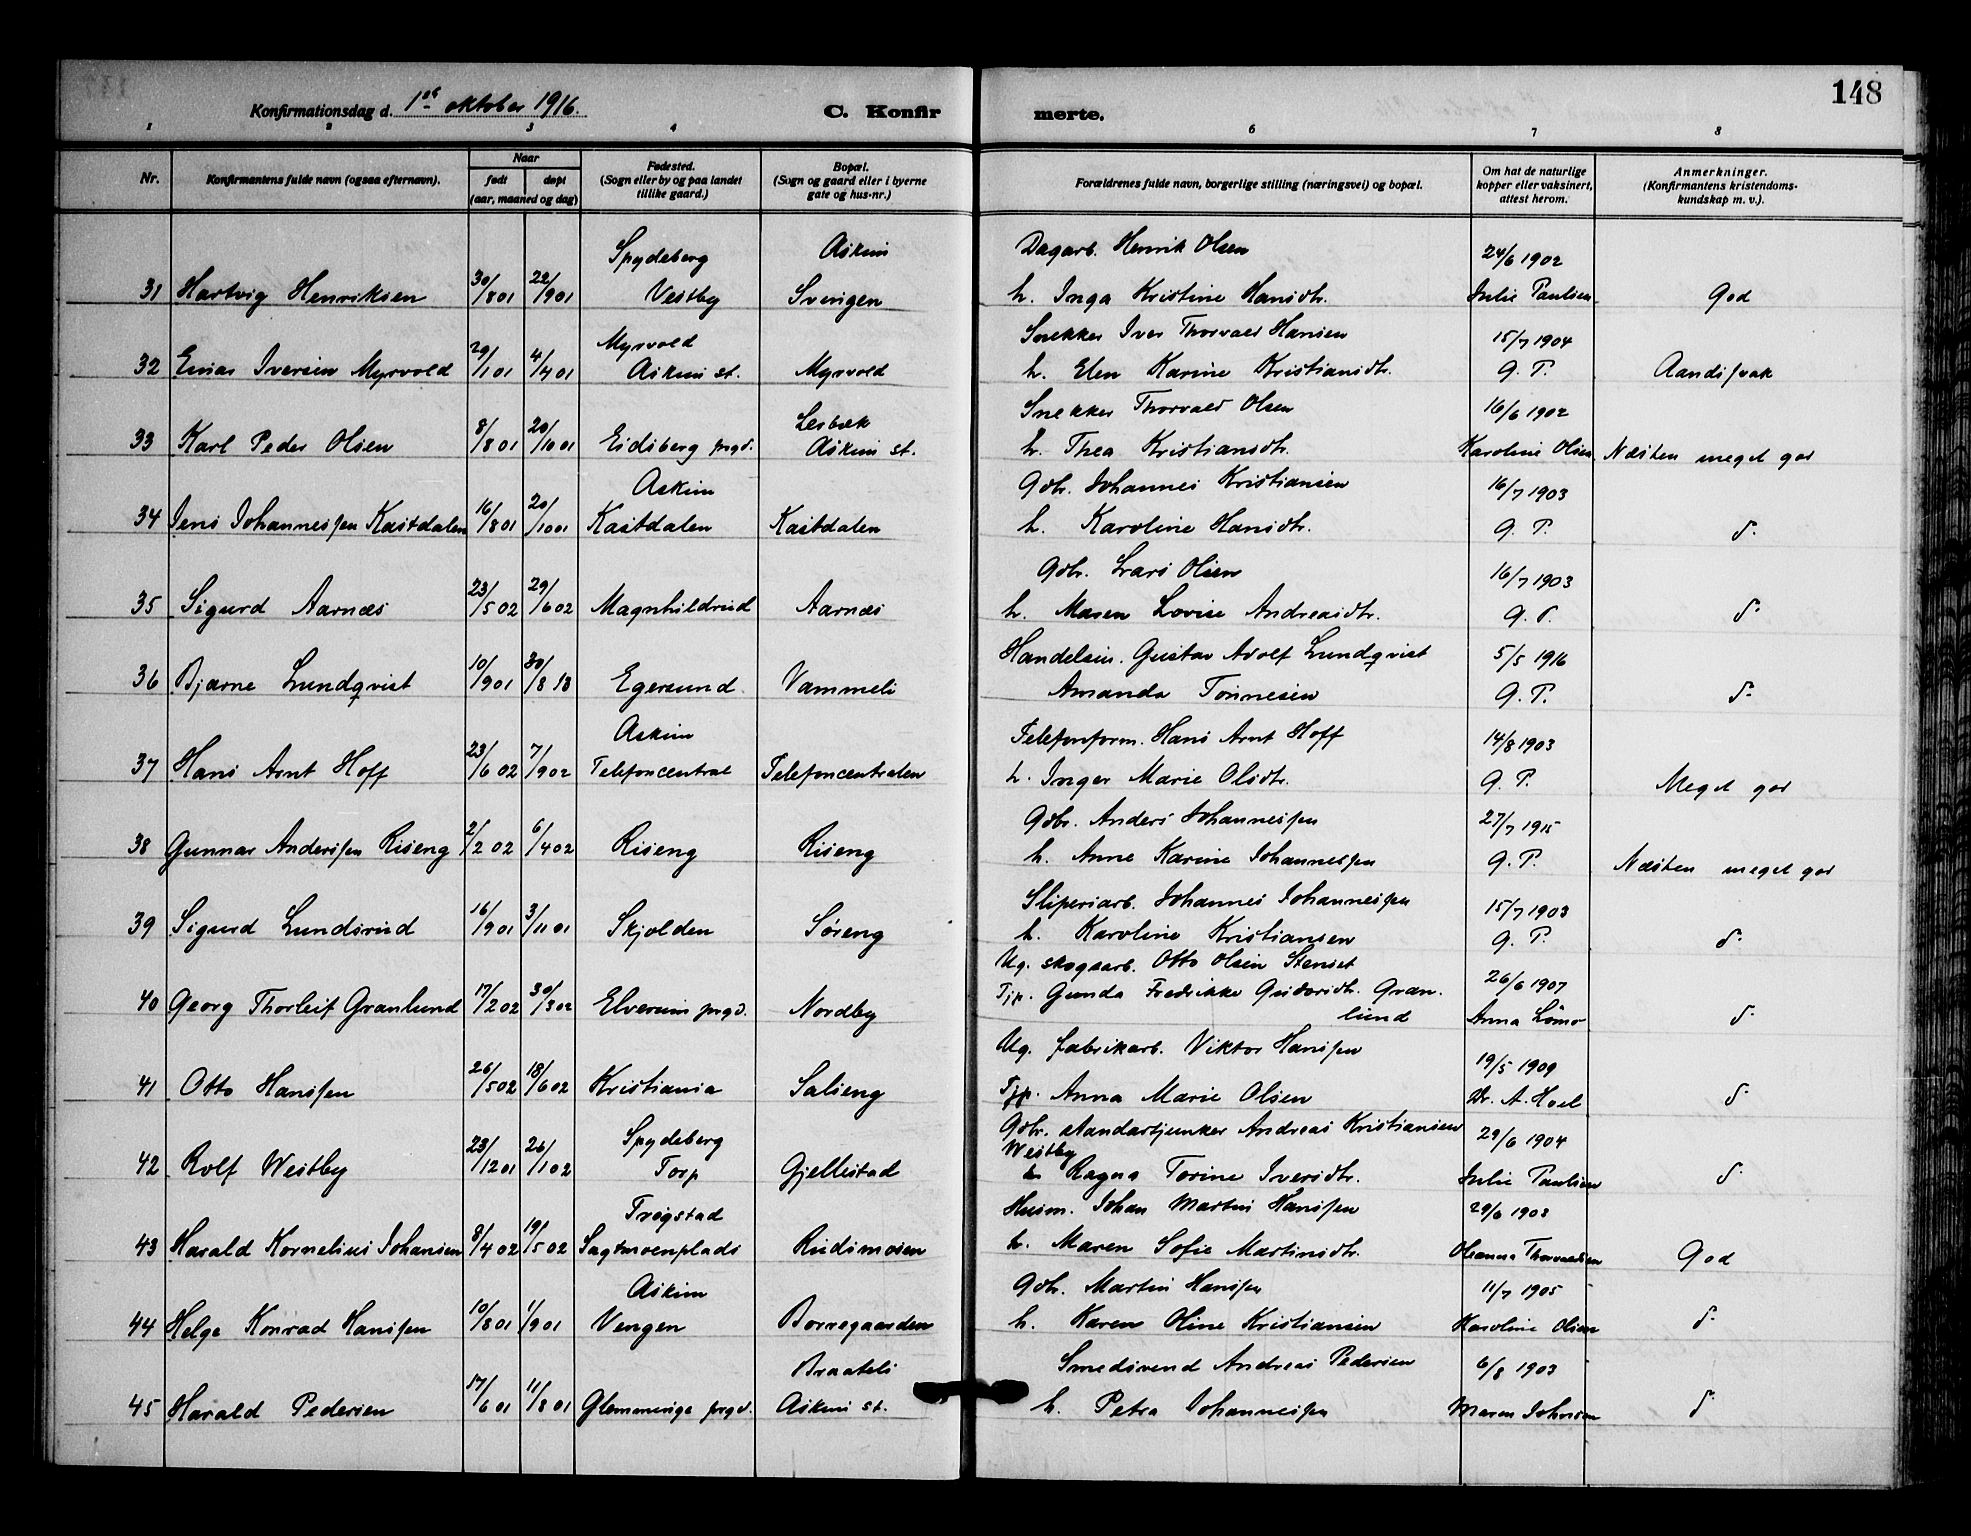 148
Konfirmationsdag d. 1ste oktober 1916. C. Konfirmerte.
1 2 3 4 6 7 8
Nr. Konfirmantens fulde navn (ogsaa efternavn). Naar født døpt (aar, maaned og dag) Fødested. (Sogn eller by og paa landet tillike gaard.) Bopæl. (Sogn og gaard eller i byerne gate og hus-nr.) Forældrenes fulde navn, borgerlige stilling (næringsvei) og bopæl. Om hat de naturlige kopper eller vaksinert, attest herom. Anmerkninger. (Konfirmantens kristendoms-kundskap m. v.).
Spydeberg Askim Dagarb. Henrik Olsen 24/6 1902
31 Hartvig Henriksen 30/8 01 22/9 01 Vestby Svingen h. Inga Kristine Hansdtr. Julie Paulsen God
Myrvold Snekker Iver Thorvald Hansen 15/7 1904
32 Einar Iversen Myrvold 29/1 01 4/4 01 Askim st. Myrvold h. Elen Karine Kristiansdtr. G. P. Aandssvak
Lesbæk Snekker Thorvald Olsen 16/6 1902
33 Karl Peder Olsen 8/8 01 20/10 01 Eidsberg prgd. Askim st. h. Thea Kristiansdtr. Karoline Olsen Næsten meget god
Askim Gbr. Johannes Kristiansen 16/7 1903
34 Jens Johannessen Kastdalen 16/8 01 20/10 01 Kastdalen Kastdalen h. Karoline Hansdtr. G. P. d-
Gbr. Lars Olsen 16/7 1903
35 Sigurd Aarnæs 23/5 02 29/6 02 Magnhildrud Aarnæs h. Maren Lovise Andreasdtr. G. P. d-
Handelsm. Gustav Adolf Lundqvist 5/5 1916
36 Bjarne Lundqvist 10/9 01 30/8 13 Egersund Vammeli Amanda Tønnesen G. P. d-
Askim Telefonform. Hans Arnt Hoff 14/8 1903
37 Hans Arnt Hoff 23/6 02 7/9 02 Telefoncentral Telefoncentralen h. Inger Marie Olsdtr. G. P. Meget god
Gbr. Anders Johannessen 27/7 1915
38 Gunnar Anderssen Riseng 2/2 02 6/4 02 Riseng Riseng h. Anne Karine Johannessen G. P. Næsten meget god
Sliperiarb. Johannes Johannessen 15/7 1903
39 Sigurd Lundsrud 16/9 01 3/11 01 Skjolden Søreng h. Karoline Kristiansen G. P. d-
Ug. skogsarb. Otto Olsen Stenset 26/6 1907
40 Georg Thorleif Granlund 17/2 02 30/3 02 Elverum prgd. Nordby Tjp. Gunda Fredrikke Gudbrdtr. Granlund Anna Lømo d-
Ug. fabrikarb. Viktor Hanssen 19/5 1909
41 Otto Hanssen 26/5 02 18/6 02 Kristiania Salseng Tjp. Anna Marie Olsen Dr. A. Hoel d-
Spydeberg Gbr. standartjunker Andreas Kristiansen Westby 29/6 1904
42 Rolf Westby 23/12 01 26/1 02 Torp Gjellestad h. Ragna Torine Iversdtr. Julie Paulsen d-
Trøgstad Husm. Johan Martin Hanssen 29/6 1903
43 Harald Kornelius Johansen 8/4 02 19/5 02 Sagtmoenplads Rudsmoen h. Maren Sofie Martinsdtr. Oleanna Thorvaldsen God
Askim Gbr. Martin Hanssen 11/7 1905
44 Helge Konrad Hanssen 10/8 01 1/9 01 Vengen Borregaarden h. Karen Oline Kristiansen Karoline Olsen d-
Braateli Smedsvend Andreas Pedersen 6/8 1903
45 Harald Pedersen 17/6 01 11/8 01 Glemminge prgd. Askim st. h. Petra Johannessen Maren Johnsen d-